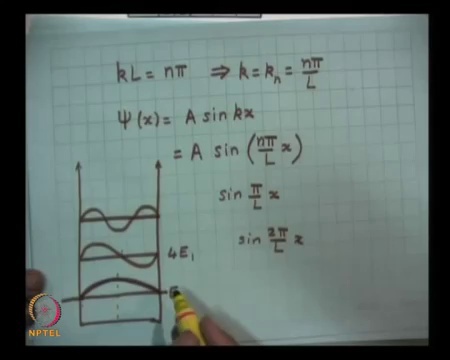 kL = nπ ⇒ k = kₙ = nπ/L
Ψ(x) = A sin kx
= A sin (nπ/L x)
sin π/L x
sin 2π/L x
4E₁
NPTEL